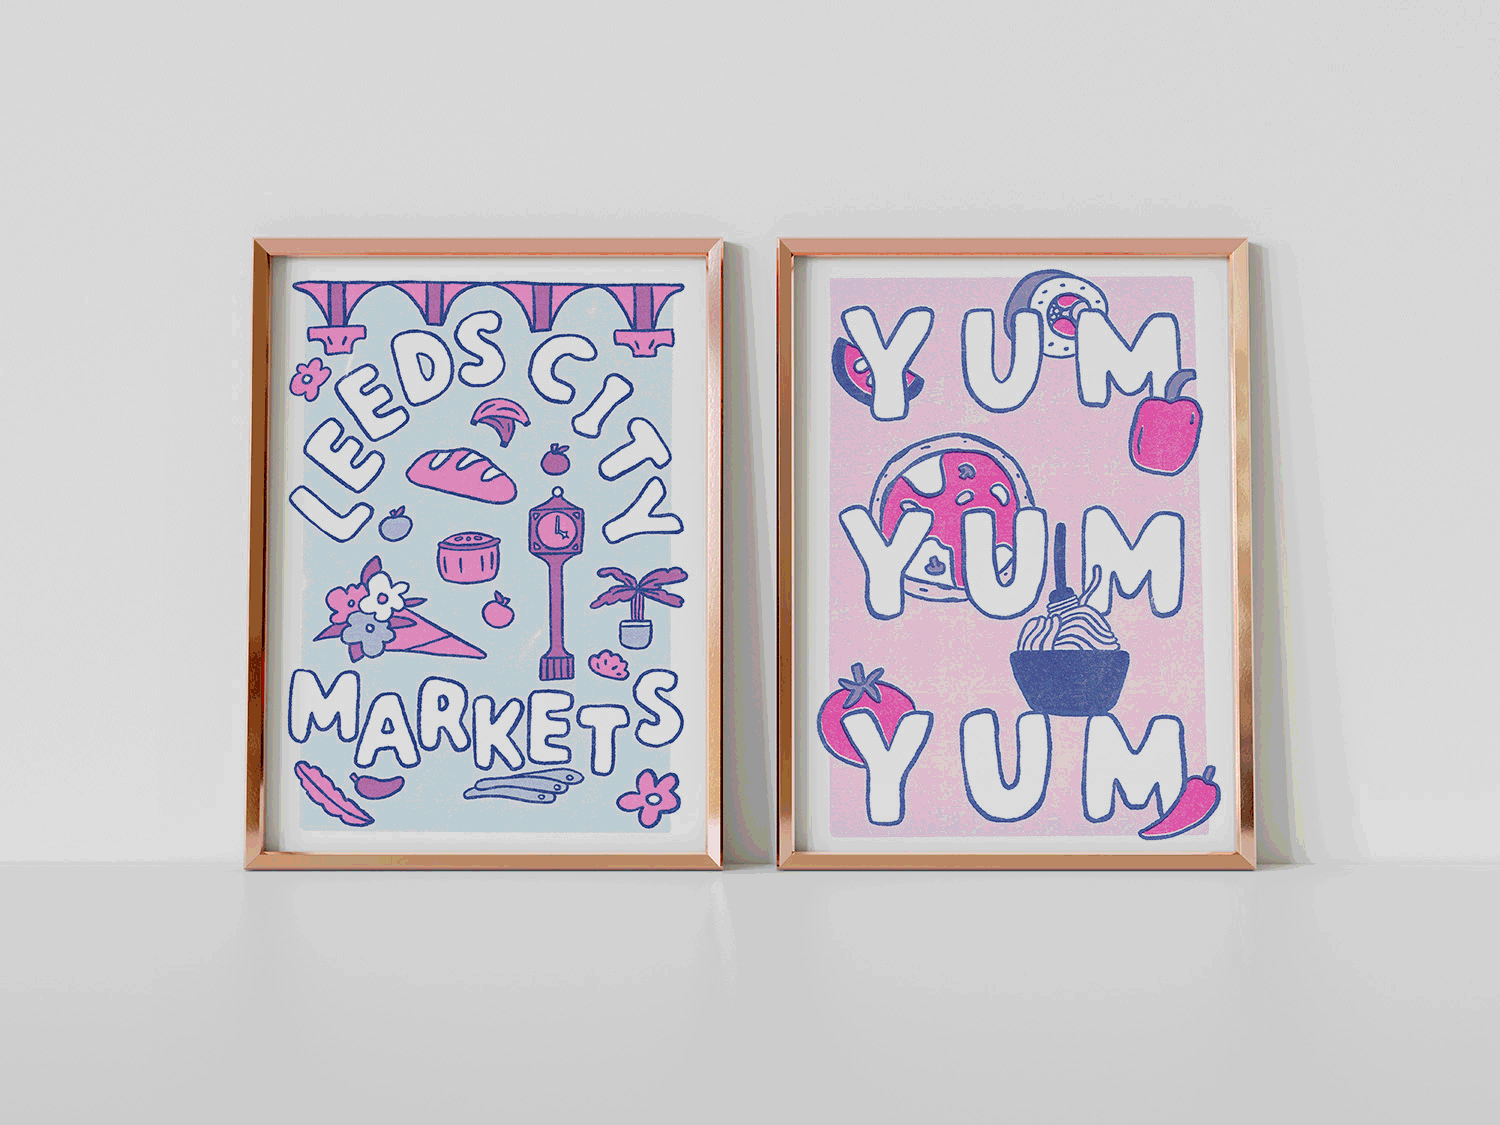 LEEDS CITY
MARKETS
YUM
YUM
YUM